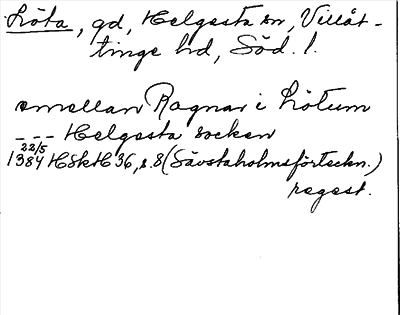 Löta, gd, Helgesta sn, Villåt-
tinge hd, Söd. l.
emellan Ragnar i Lötum
--- Helgesta socken
1384 22/5 HSkH 36, s. 8 (Sävstaholmsförteckn.)
regest.